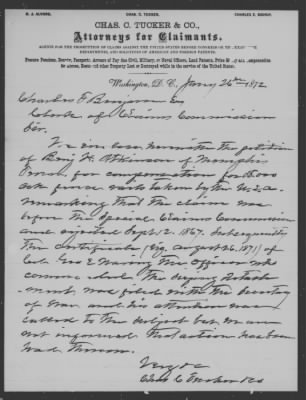 H. A. ALVORD. CHAS. C. TUCKER. CHARLES E. BISHOP.
CHAS. C. TUCKER & CO.,
Attorneys for Claimants.
AGENTS FOR THE PROSECUTION OF CLAIMS AGAINST THE UNITED STATES BEFORE CONGRESS OR THE
DEPARTMENTS, AND SOLICITORS OF AMERICAN AND FOREIGN PATENTS.
Procure Pensions, Bounty, Passports; Arrears of Pay due Civil, Military, or Naval Officers, Land Patents, Prize
for stores, Boats and other Property Lost or Destroyed while in the service of the United States.
Washington, D. C., Jany 26th 1872
Charles F Benjamin Esq
Clerk of Claims Commission
Sir.
We enclose herewith the petition
of Benj H. Atkinson of Memphis
Tenn for compensation for 15.000
rails taken by the U.S.A.
remarking that the claim was
before the Special Claims Commission
and rejected Sept 12. 1867. Subsequently
the certificate (Aug 26. 1871) of
Col. Geo E Waring the officer who
commanded the
was filed with the Secretary
of War and his attention was
called to the subject but we are
not informed that action has been
had thereon.
Very &c
Chas C Tucker & Co